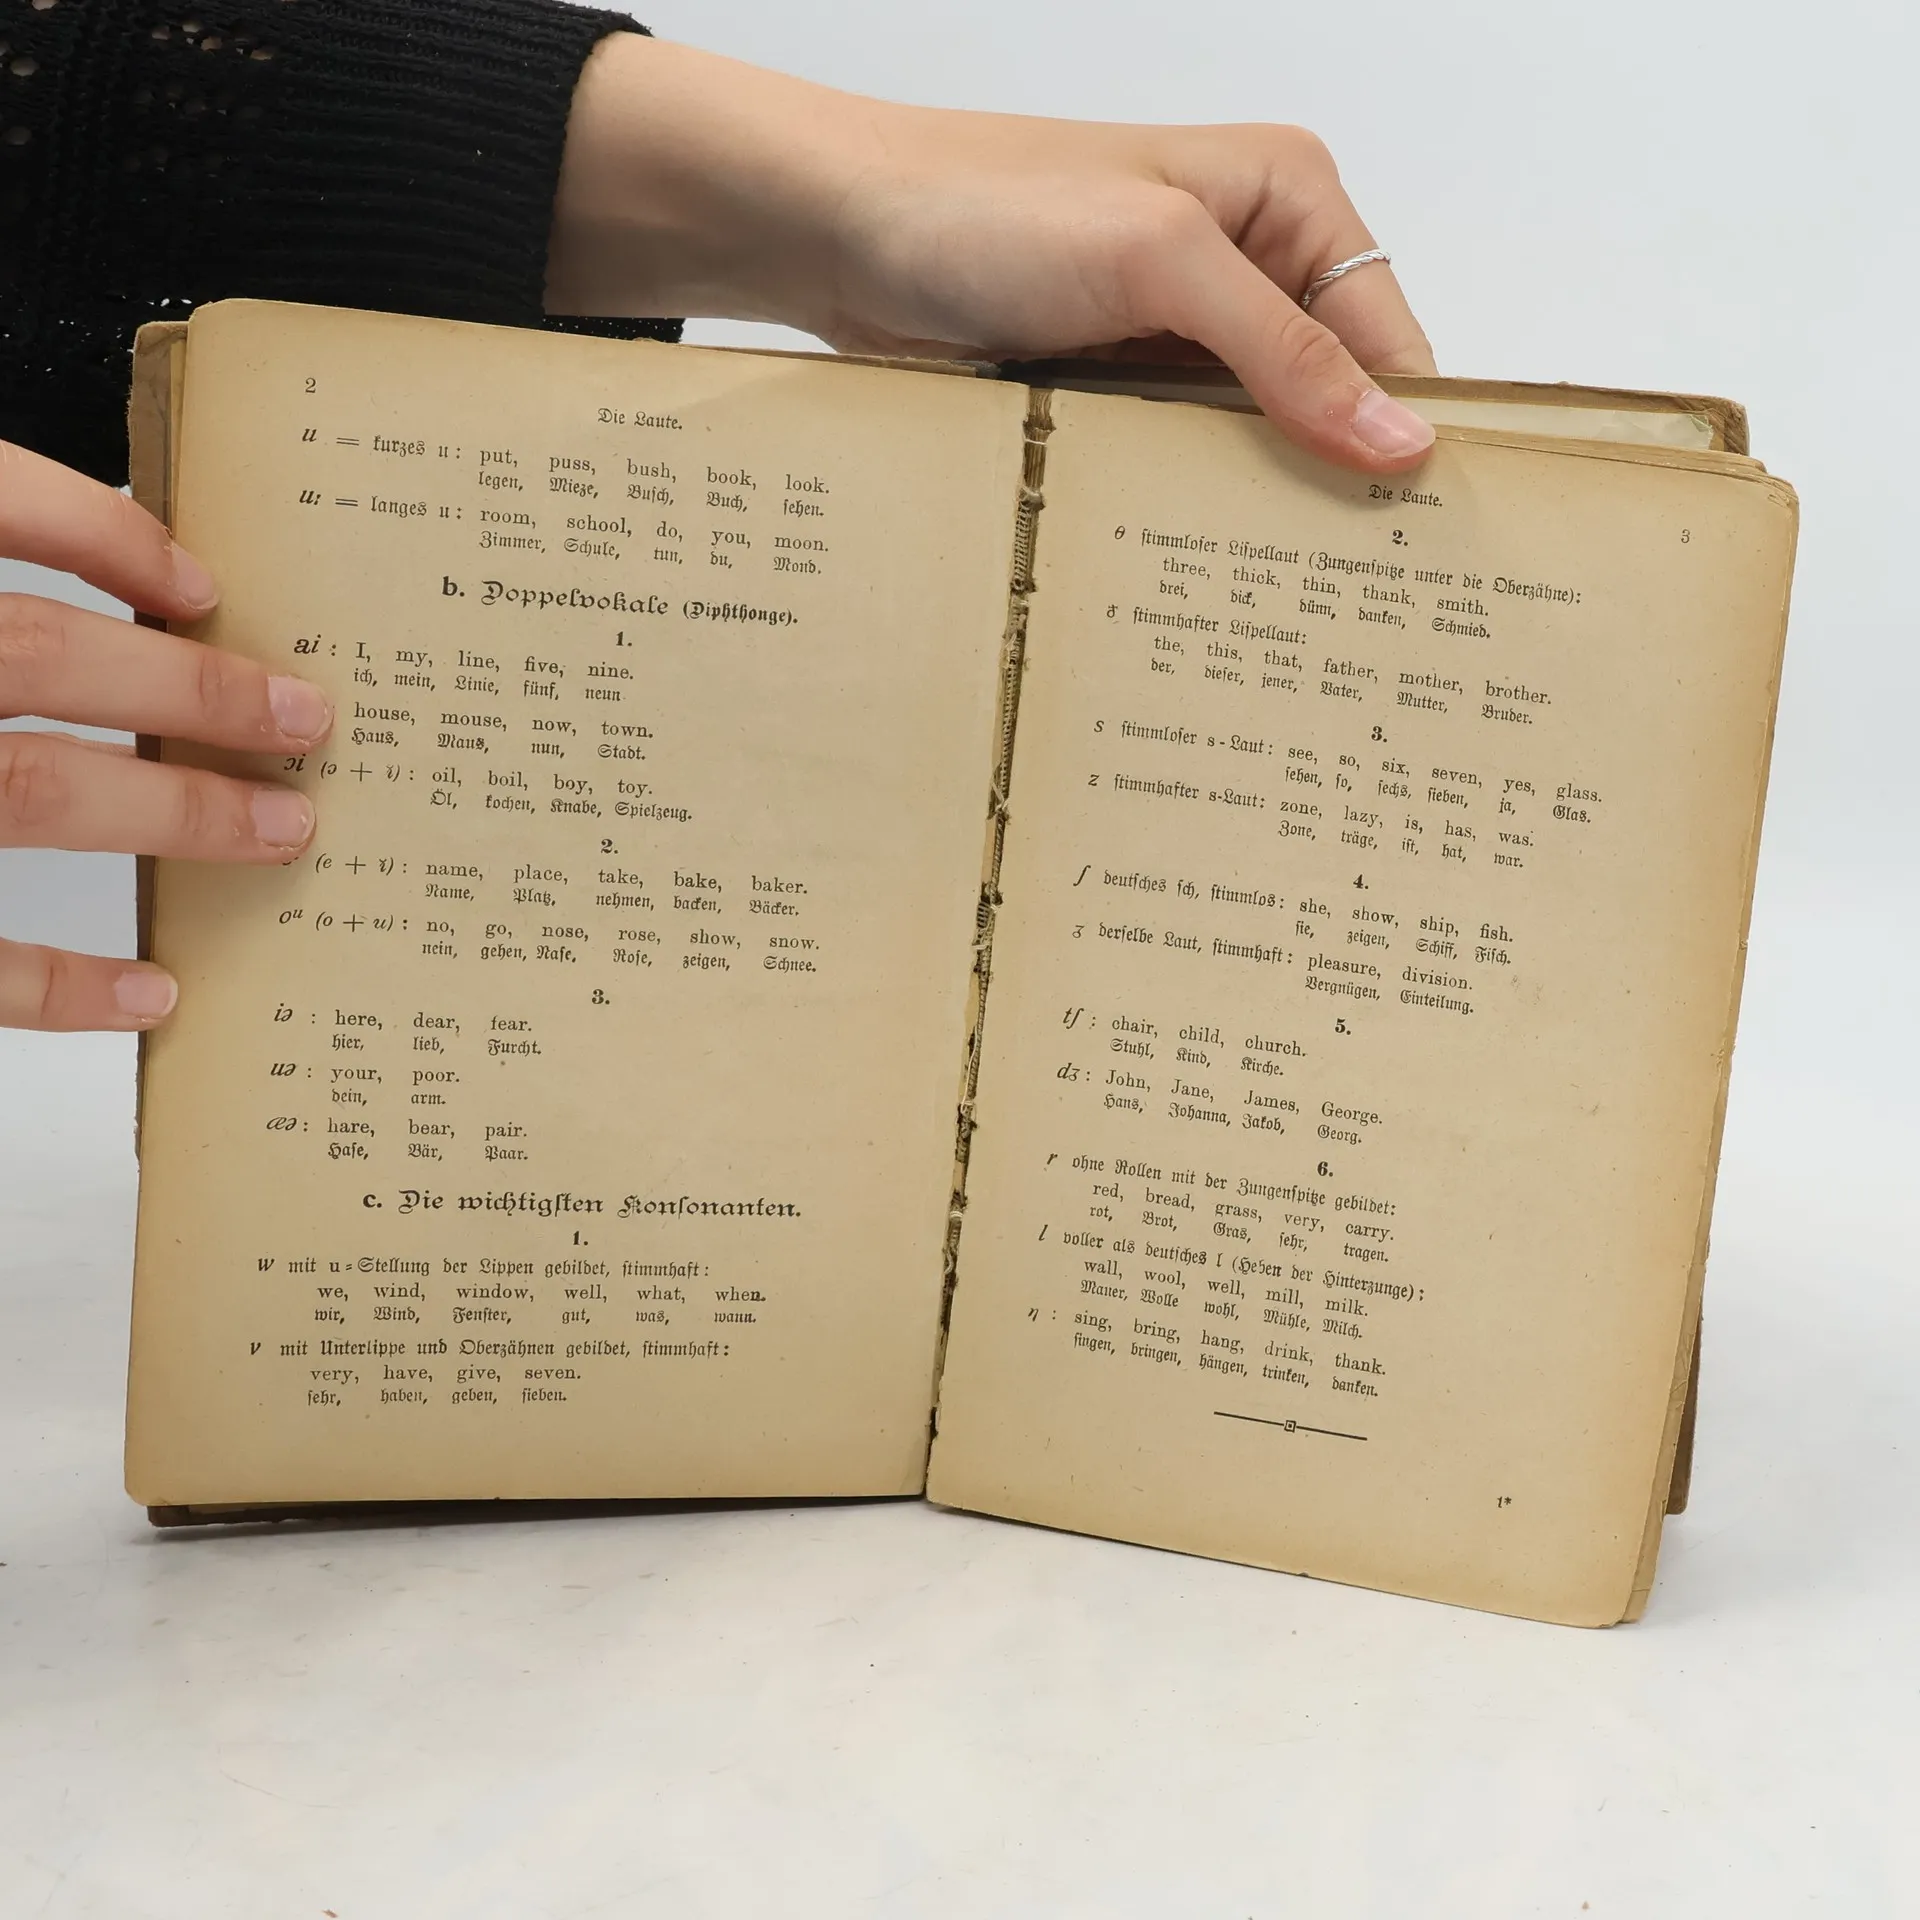 2
Die Laute.
u = kurzes u: put, puss, bush, book, look.
legen, Mieze, Buſch, Buch, ſehen.
u: = langes u: room, school, do, you, moon.
Zimmer, Schule, tun, du, Mond.
b. Doppelvokale (Diphthonge).
1.
ai: I, my, line, five, nine.
ich, mein, Linie, fünf, neun
house, mouse, now, town.
Haus, Maus, nun, Stadt.
ɔi (ɔ + ɪ): oil, boil, boy, toy.
Öl, kochen, Knabe, Spielzeug.
2.
(e + ɪ): name, place, take, bake, baker.
Name, Platz, nehmen, backen, Bäcker.
oᵘ (o + u): no, go, nose, rose, show, snow.
nein, gehen, Naſe, Roſe, zeigen, Schnee.
3.
iə: here, dear, fear.
hier, lieb, Furcht.
uə: your, poor.
dein, arm.
æə: hare, bear, pair.
Haſe, Bär, Paar.
c. Die wichtigſten Konſonanten.
1.
w mit u=Stellung der Lippen gebildet, ſtimmhaft:
we, wind, window, well, what, when.
wir, Wind, Fenſter, gut, was, wann.
v mit Unterlippe und Oberzähnen gebildet, ſtimmhaft:
very, have, give, seven.
ſehr, haben, geben, ſieben.
Die Laute.
3
2.
θ ſtimmloſer Liſpellaut (Zungenſpitze unter die Oberzähne):
three, thick, thin, thank, smith.
drei, dick, dünn, danken, Schmied.
ð ſtimmhafter Liſpellaut:
the, this, that, father, mother, brother.
der, dieſer, jener, Vater, Mutter, Bruder.
3.
s ſtimmloſer s-Laut: see, so, six, seven, yes, glass.
ſehen, ſo, ſechs, ſieben, ja, Glas.
z ſtimmhafter s-Laut: zone, lazy, is, has, was.
Zone, träge, iſt, hat, war.
4.
ʃ deutſches ſch, ſtimmlos: she, show, ship, fish.
ſie, zeigen, Schiff, Fiſch.
ʒ derſelbe Laut, ſtimmhaft: pleasure, division.
Vergnügen, Einteilung.
5.
tʃ: chair, child, church.
Stuhl, Kind, Kirche.
dʒ: John, Jane, James, George.
Hans, Johanna, Jakob, Georg.
6.
r ohne Rollen mit der Zungenſpitze gebildet:
red, bread, grass, very, carry.
rot, Brot, Gras, ſehr, tragen.
l voller als deutſches l (Heben der Hinterzunge):
wall, wool, well, mill, milk.
Mauer, Wolle wohl, Mühle, Milch.
η: sing, bring, hang, drink, thank.
ſingen, bringen, hängen, trinken, danken.
1*